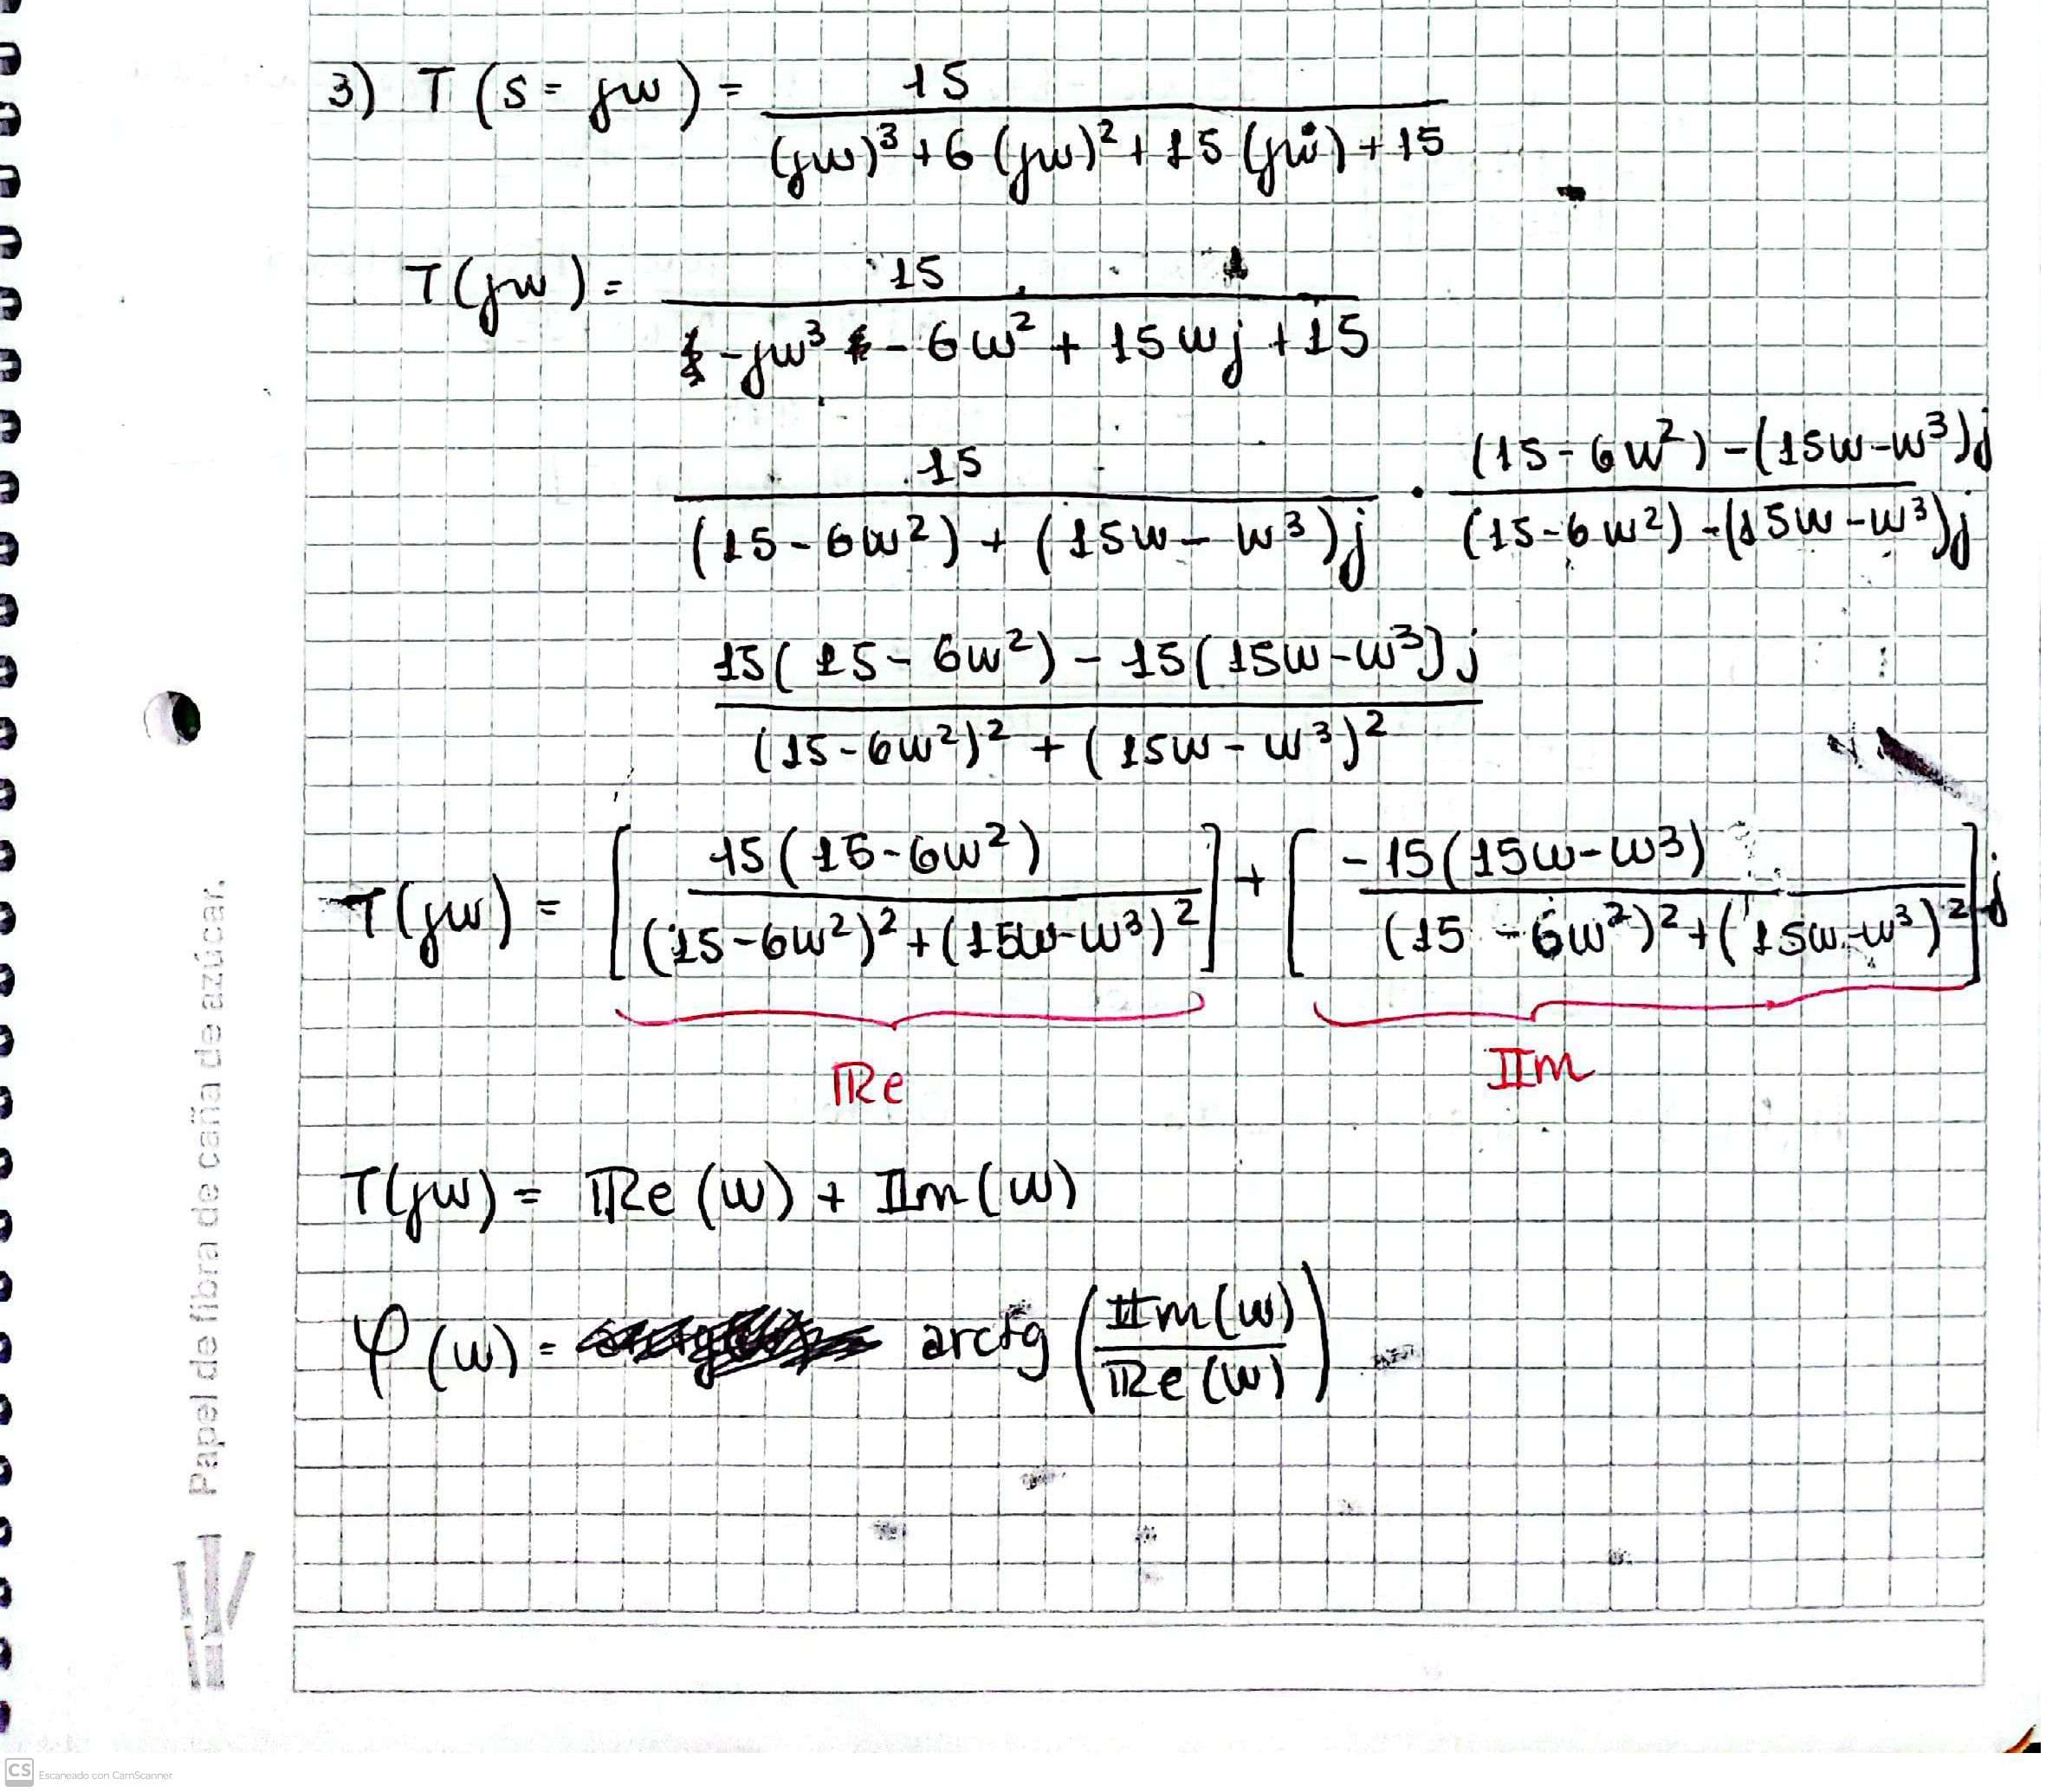 3) T(s=jw) = 15 / ((jw)³+6(jw)²+15(jw)+15)
T(jw) = 15 / (-jw³ - 6w² + 15wj + 15)
15 / ((15-6w²) + (15w-w³)j) · ((15-6w²)-(15w-w³)j) / ((15-6w²)-(15w-w³)j)
(15(15-6w²) - 15(15w-w³)j) / ((15-6w²)² + (15w-w³)²)
T(jw) = [15(15-6w²) / ((15-6w²)²+(15w-w³)²)] + [-15(15w-w³) / ((15-6w²)²+(15w-w³)²)]j
ℝe
IIm
T(jw) = ℝe(w) + IIm(w)
φ(w) = arctg (IIm(w) / ℝe(w))
Papel de fibra de caña de azúcar.
CS Escaneado con CamScanner